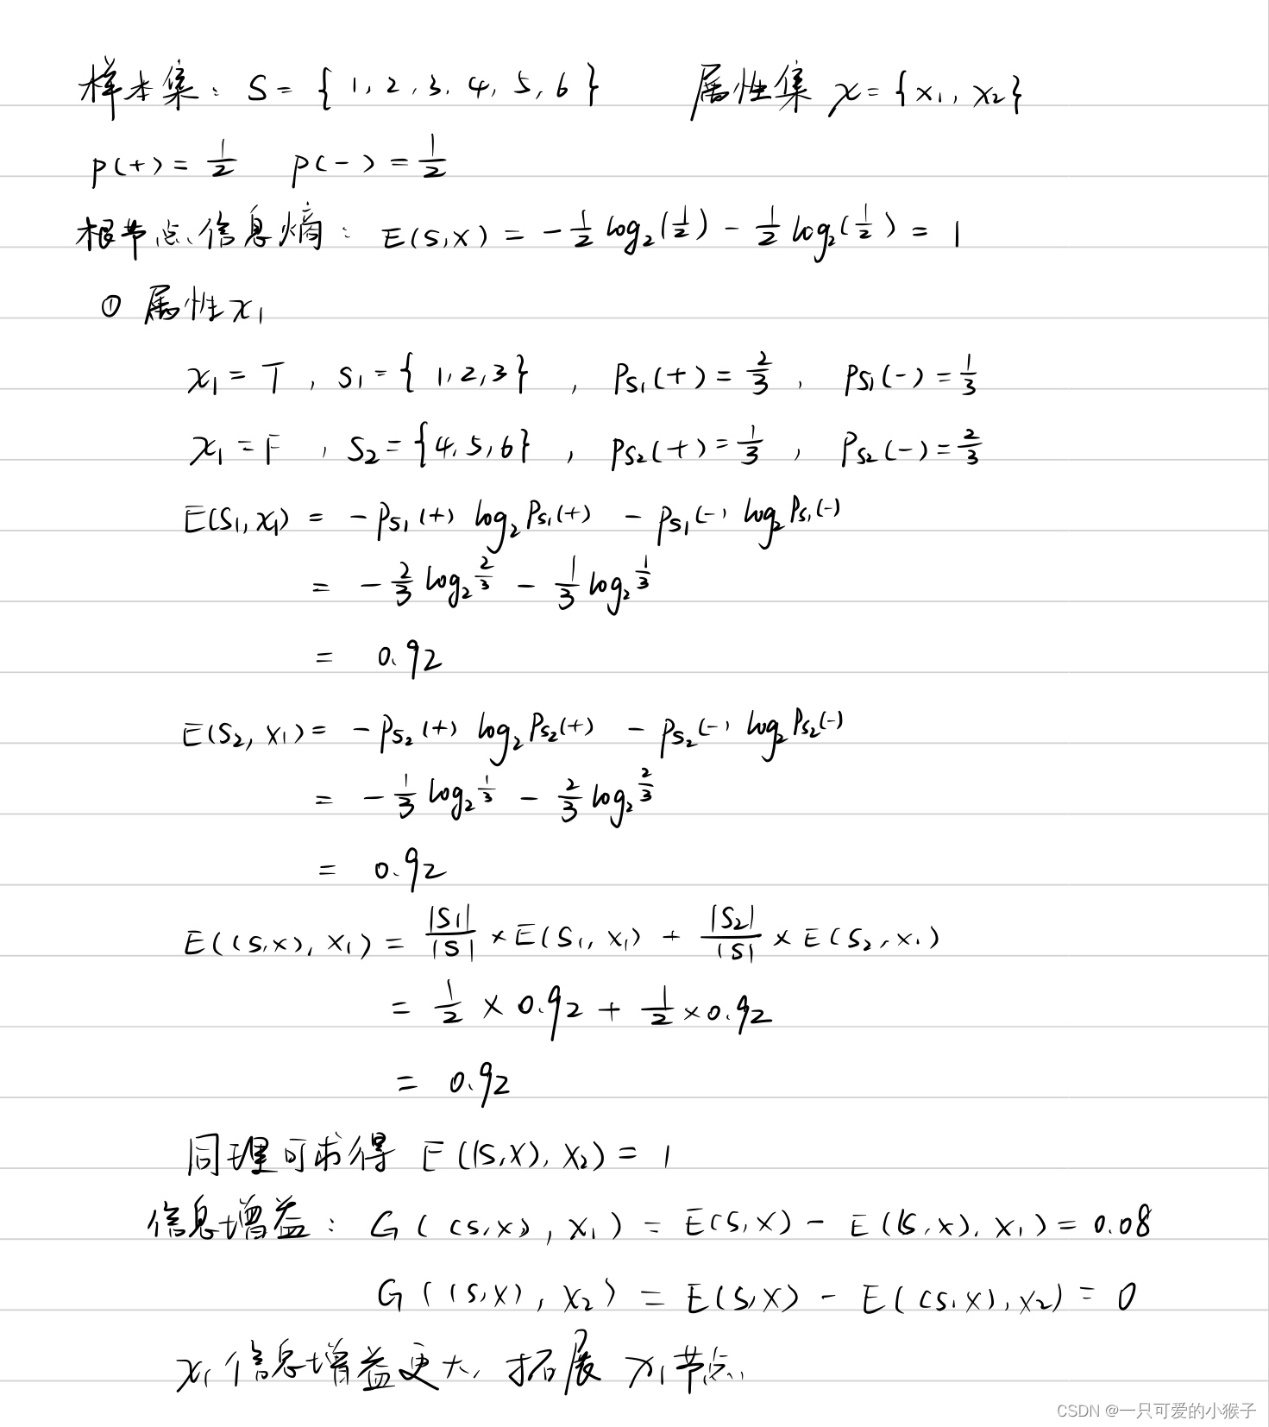 样本集: S = { 1, 2, 3, 4, 5, 6 }  属性集 x = {x₁, x₂}
p(+) = 1/2  p(-) = 1/2
根节点信息熵: E(S,X) = -1/2 log₂(1/2) - 1/2 log₂(1/2) = 1
① 属性x₁
x₁ = T , S₁ = { 1, 2, 3 } , Ps₁(+) = 2/3 , Ps₁(-) = 1/3
x₁ = F , S₂ = {4, 5, 6} , Ps₂(+) = 1/3 , Ps₂(-) = 2/3
E(S₁, x₁) = -Ps₁(+) log₂ Ps₁(+) - Ps₁(-) log₂ Ps₁(-)
= -2/3 log₂ 2/3 - 1/3 log₂ 1/3
= 0.92
E(S₂, x₁) = -Ps₂(+) log₂ Ps₂(+) - Ps₂(-) log₂ Ps₂(-)
= -1/3 log₂ 1/3 - 2/3 log₂ 2/3
= 0.92
E((S,X), x₁) = |S₁|/|S| × E(S₁, x₁) + |S₂|/|S| × E(S₂, x₁)
= 1/2 × 0.92 + 1/2 × 0.92
= 0.92
同理可求得 E((S,X), X₂) = 1
信息增益: G((S,X), X₁) = E(S,X) - E((S,X), X₁) = 0.08
G((S,X), X₂) = E(S,X) - E((S,X), X₂) = 0
x₁信息增益更大, 拓展 x₁节点.
CSDN @一只可爱的小猴子